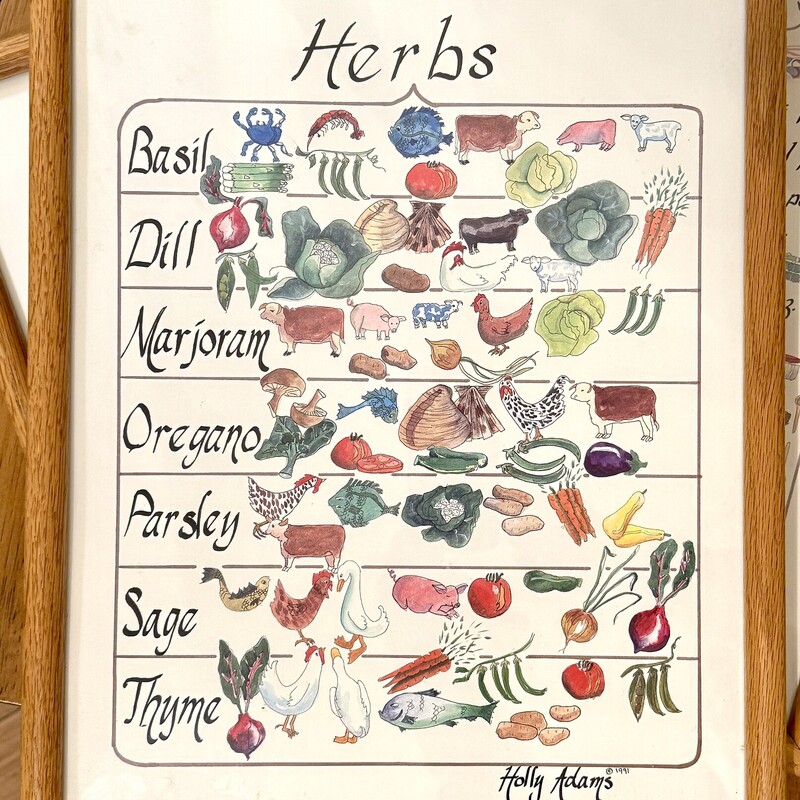 Herbs
Basil
Dill
Marjoram
Oregano
Parsley
Sage
Thyme
Holly Adams © 1991